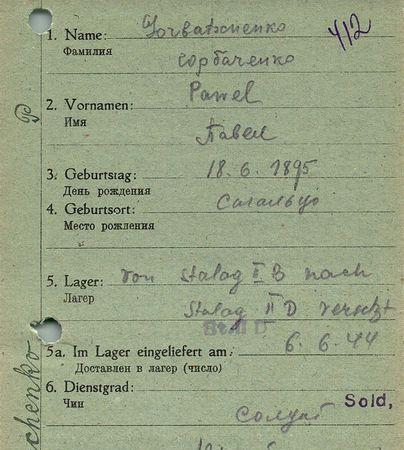 1. Name: Gorbatschenko 412
Фамилия Горбаченко
2. Vornamen: Pawel
Имя Павел
3. Geburtstag: 18. 6. 1895
День рождения
4. Geburtsort:
Место рождения
5. Lager: von Stalag II B nach
Лагер Stalag II D versetzt
5a. Im Lager eingeliefert am: 6. 6. 44
Доставлен в лагер (число)
6. Dienstgrad: Sold,
Чин Солдат
chenko